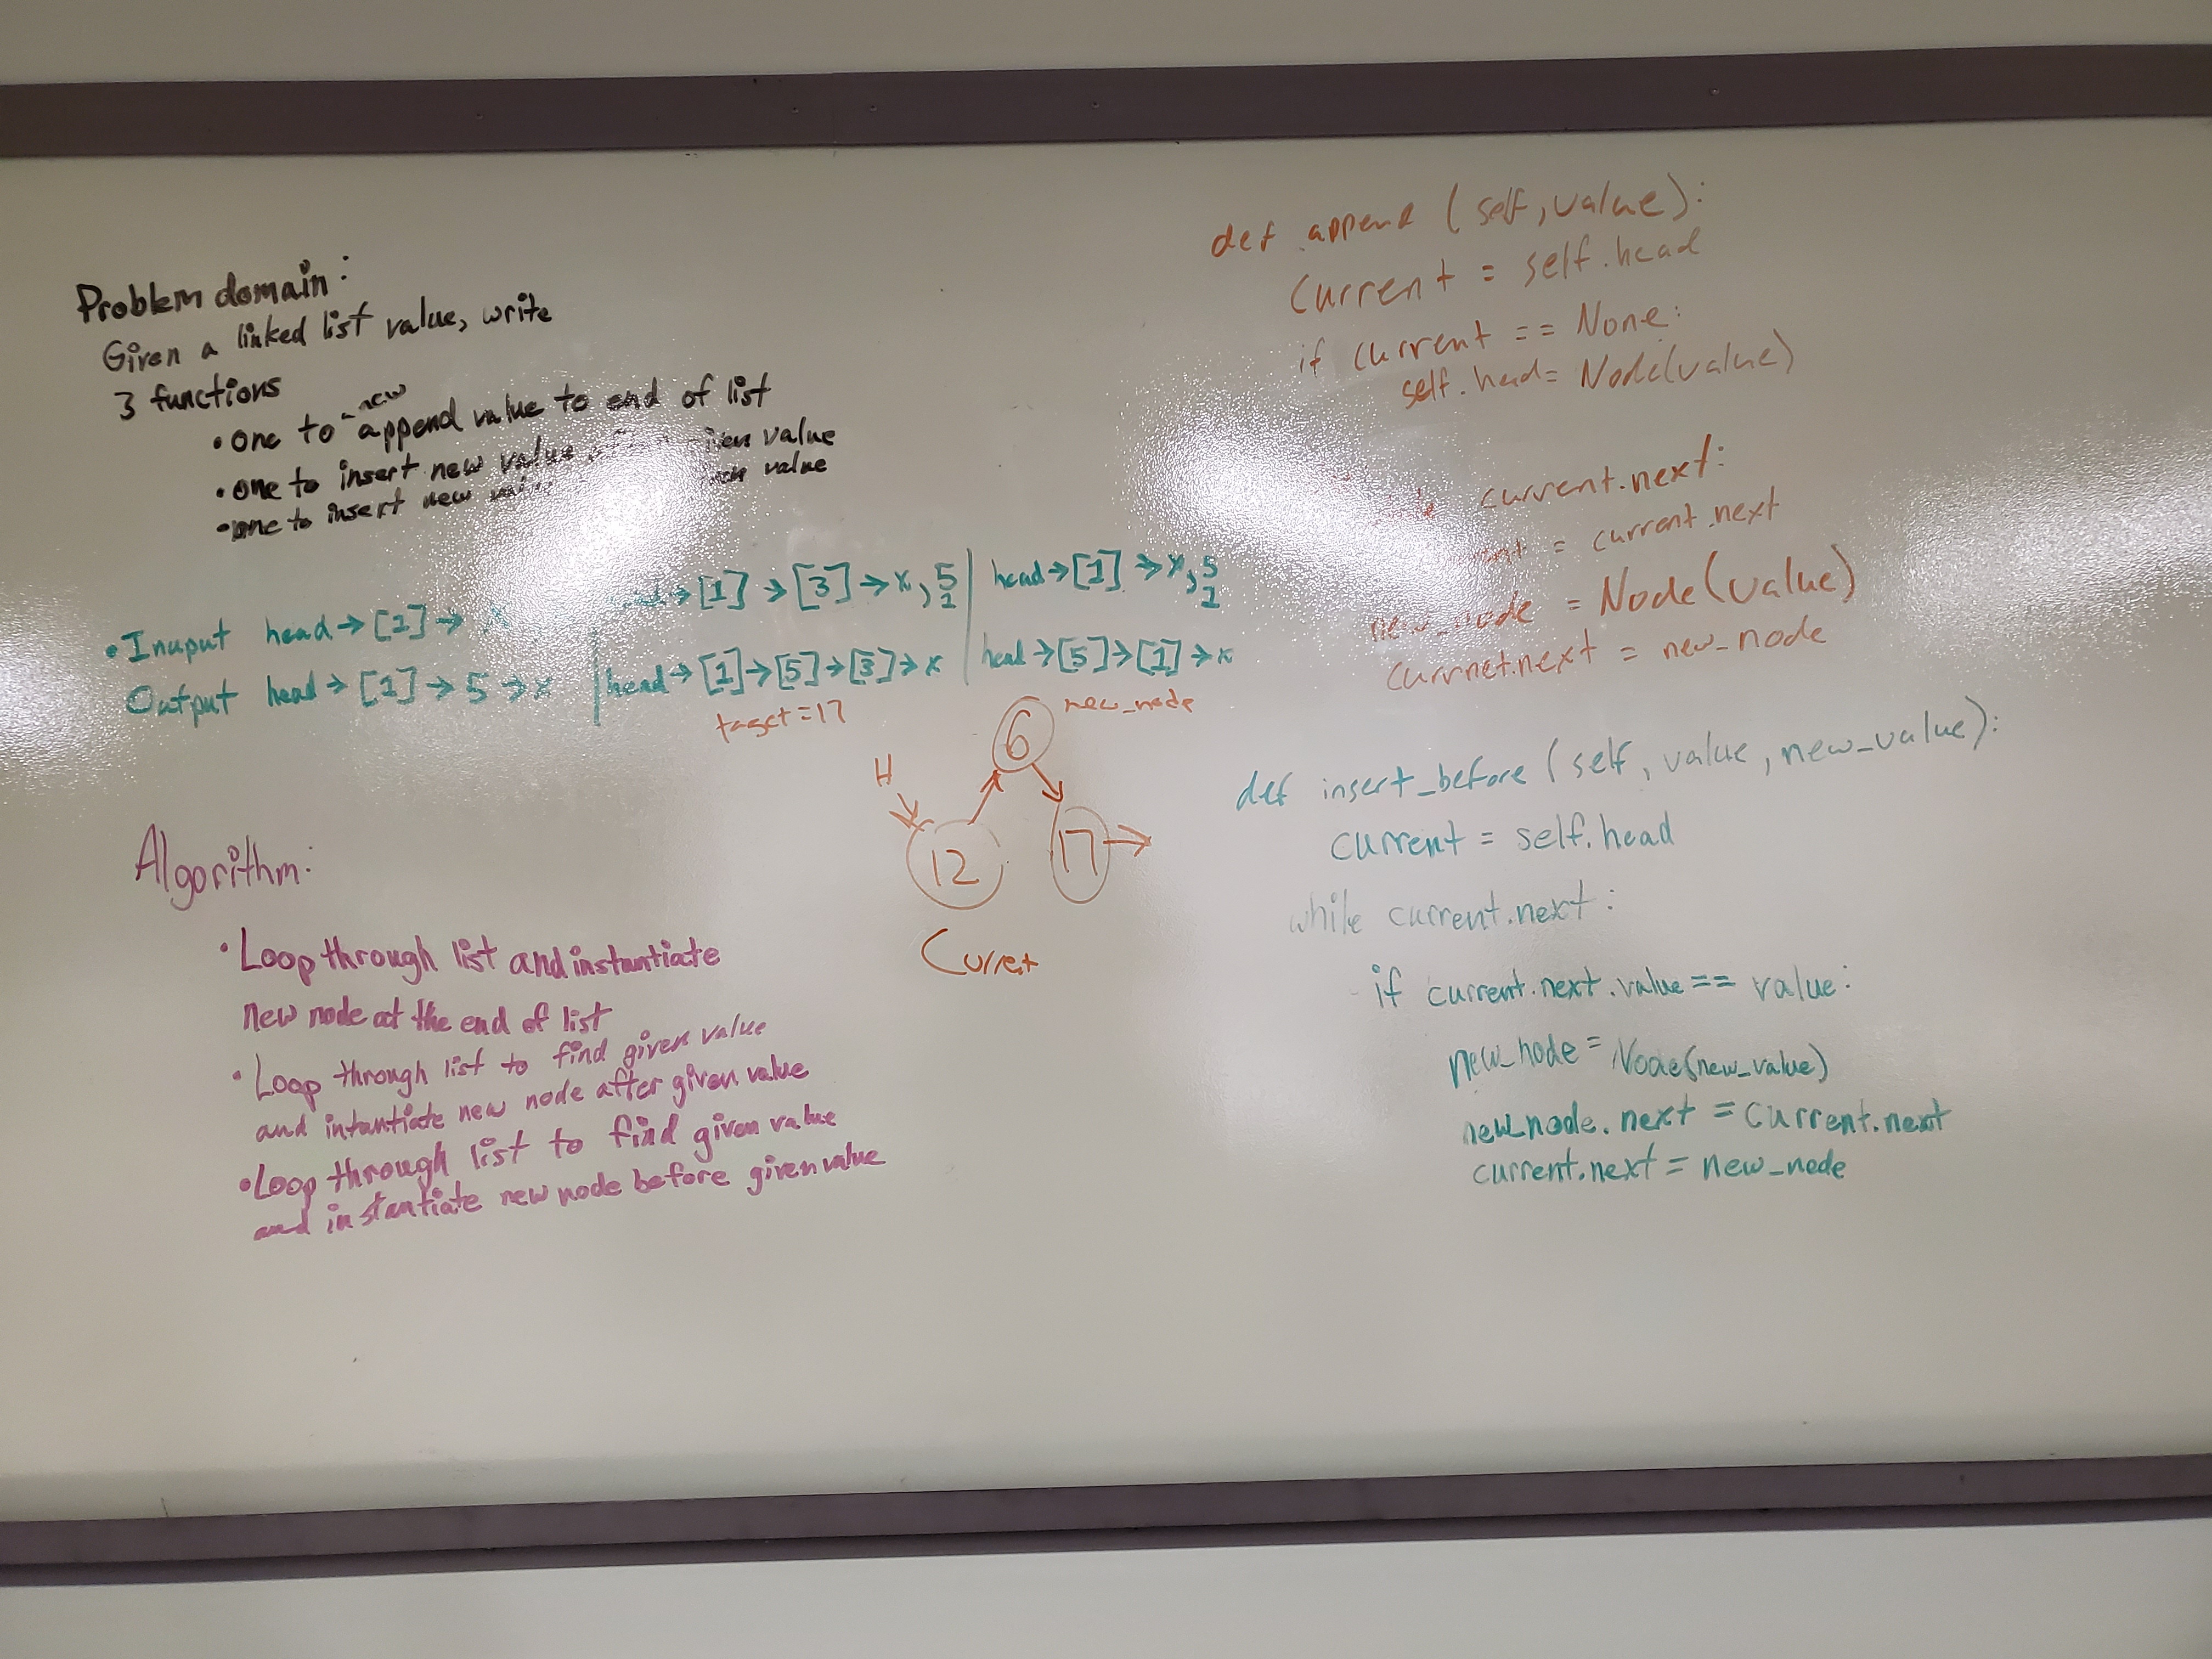 Problem domain:
Given a linked list value, write
3 functions
• one to new append value to end of list
• one to insert new value value
• one to insert new value
• Inuput head → [1] →
→ [1] → [3] → x, 5
1
head → [1] → x, 5
1
Output head → [1] → 5 → x
head → [1] → [5] → [3] → x
head → [5] → [1] → x
target = 17
6
new_node
H
12
17
Current
Algorithm:
• Loop through list and instantiate
new node at the end of list
• Loop through list to find given value
and intantiate new node after given value
• Loop through list to find given value
and instantiate new node before given value
def append (self, value):
Current = self.head
if current == None:
self.head = Node(value)
current.next:
= current.next
new_node = Node(value)
currnet.next = new_node
def insert_before (self, value, new_value):
current = self.head
while current.next:
if current.next.value == value:
new_node = Node(new_value)
new_node.next = current.next
current.next = new_node